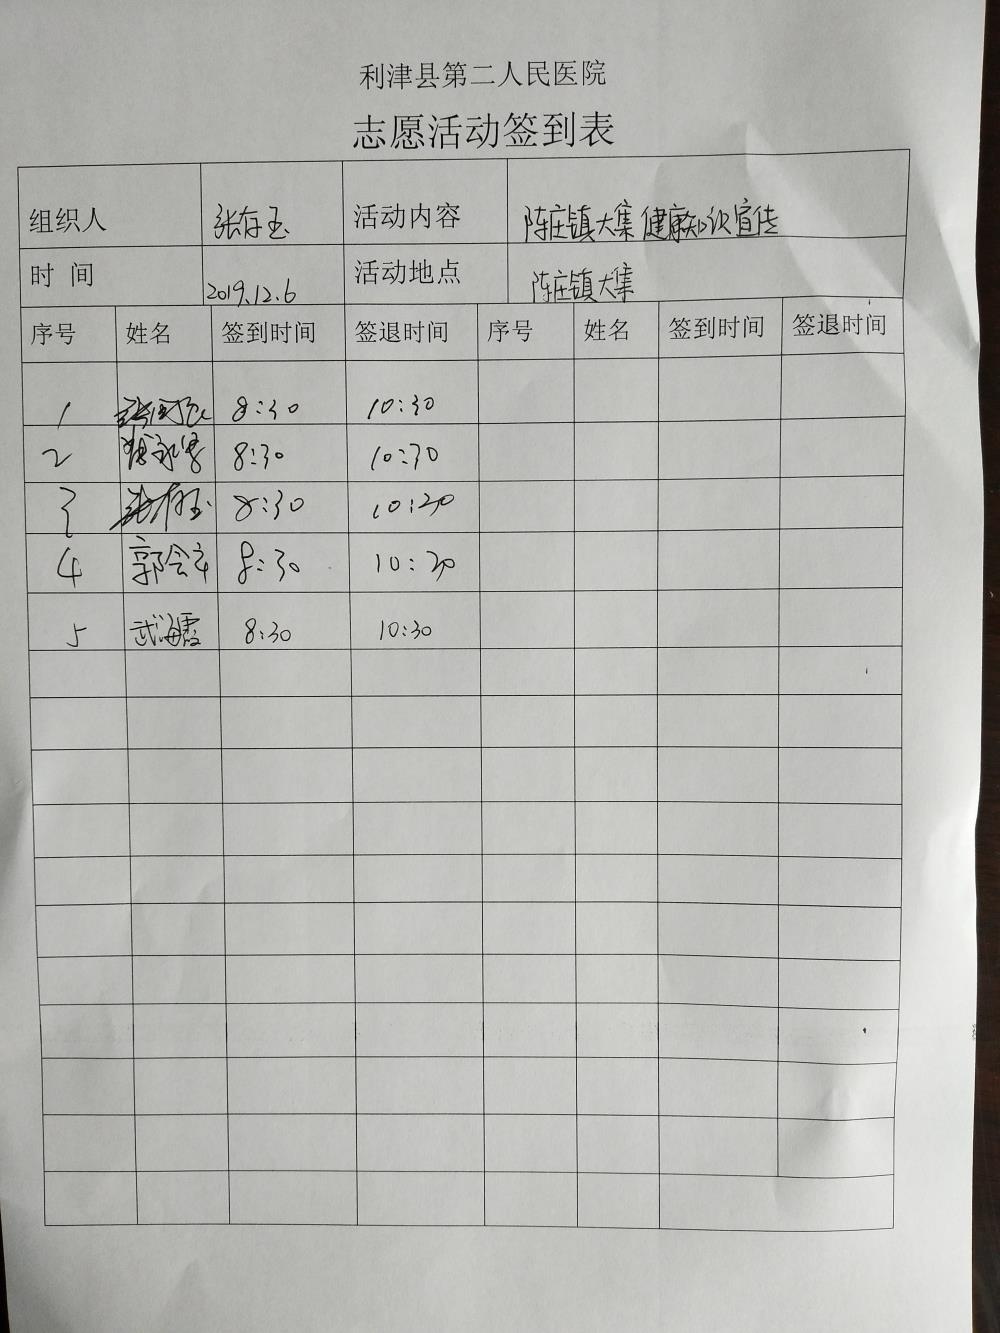 利津县第二人民医院
志愿活动签到表
组织人 张存玉 活动内容 陈庄镇大集健康知识宣传
时 间 2019.12.6 活动地点 陈庄镇大集
序号 姓名 签到时间 签退时间 序号 姓名 签到时间 签退时间
1 8:30 10:30
2 8:30 10:30
3 张存玉 8:30 10:30
4 郭会军 8:30 10:30
5 武海霞 8:30 10:30